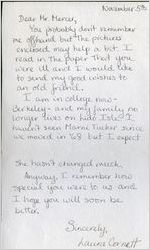 November 5th
Dear Mr. Mercer,
You probably don't remember
me offhand but the pictures
enclosed may help a bit. I
read in the paper that you
were ill and I would like
to send my good wishes to
an old friend.
I am in college now -
Berkeley - and my family no
longer lives on Lido Isle. I
haven't seen Mama Tucker since
we moved in '68 but I expect
She hasn't changed much.
Anyway, I remember how
special you were to us and
I hope you will soon be
better.
Sincerely,
Laura Cornett